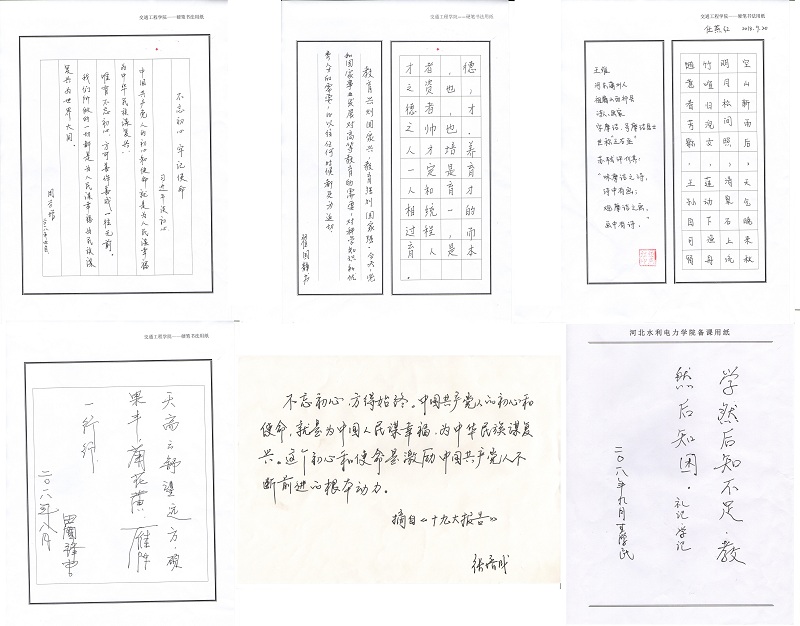 交通工程学院——硬笔书法用纸
不忘初心 牢记使命
习近平谈初心
中国共产党人的初心和使命,就是为人民谋幸福
为中华民族谋复兴.
唯有不忘初心,方可善作善成一往无前.
我们所做的一切都是为人民谋幸福为民族谋
复兴为世界大同.
交通工程学院——硬笔书法用纸
才者，德
之资也，
德者，才
之帅也。
人才培养
一定是育
人和育才
相统一的
过程，而
育人是本
。
教育兴则国家兴,教育强则国家强。今天,党
和国家事业发展对高等教育的需要,对科学知识和优
秀人才的需要,比以往任何时候都更为迫切
崔国静书
交通工程学院——硬笔书法用纸
任燕红 2018.9.20
空山新雨后，天气晚来秋
明月松间照，清泉石上流
竹喧归浣女，莲动下渔舟
意春芳歇，王孙自可留
王维
河东蒲州人
祖籍山西祁县
诗人、画家
字摩诘，号摩诘居士
世称"王右丞"
苏轼评价其：
"味摩诘之诗，
诗中有画；
观摩诘之画，
画中有诗。"
交通工程学院——硬笔书法用纸
天高云舒望远方，硕
果丰 蒲花黄，雁阵
一行行.
田国锋书
二〇一八年八月
不忘初心，方得始终。中国共产党人的初心和
使命，就是为中国人民谋幸福，为中华民族谋复
兴。这个初心和使命是激励中国共产党人不
断前进的根本动力。
摘自《十九大报告》
张培成
河北水利电力学院备课用纸
学然后知不足，教
然后知困。礼记·学记
二〇一八年九月